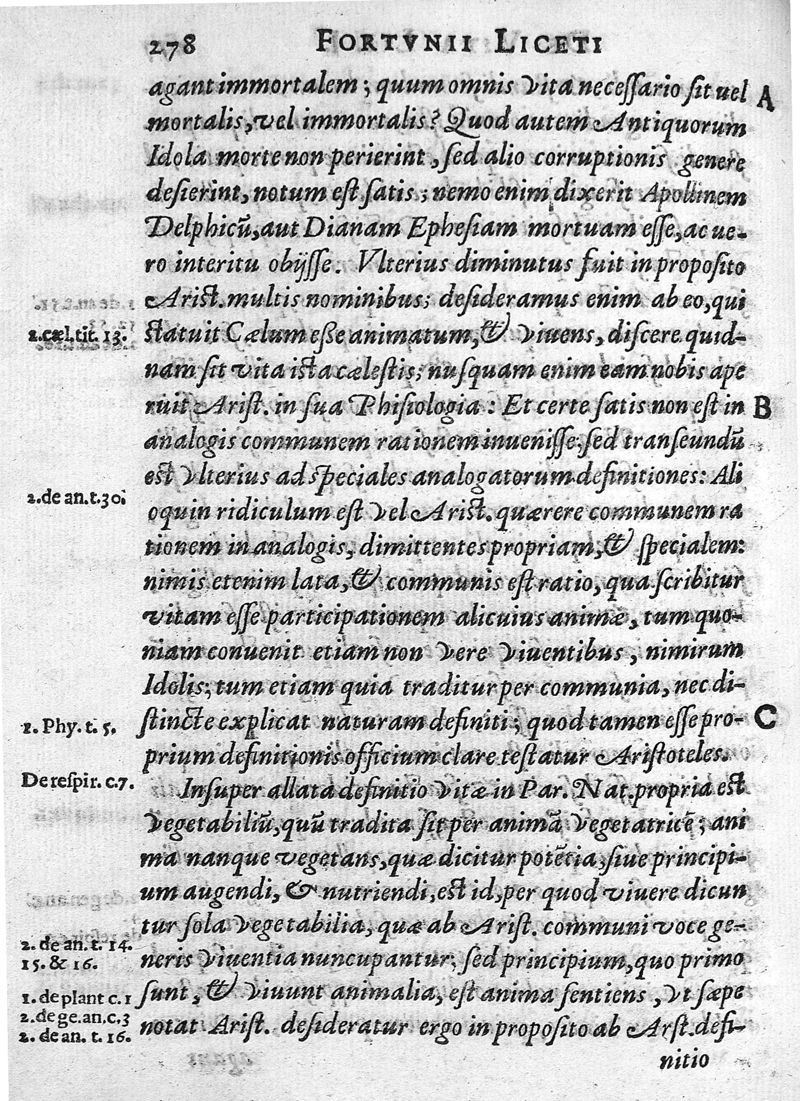 278 FORTVNII LICETI
agant immortalem; quum omnis vita necessario sit uel A
mortalis, vel immortalis? Quod autem Antiquorum
Idola morte non perierint, sed alio corruptionis genere
desierint, notum est satis; nemo enim dixerit Apollinem
Delphicū, aut Dianam Ephesiam mortuam esse, ac ue-
ro interitu obijsse. Vlterius diminutus fuit in proposito
Arist. multis nominibus; desideramus enim ab eo, qui
2. cæl. tit. 13. statuit Cælum esse animatum, & viuens, discere quid-
nam sit vita ista cælestis; nusquam enim eam nobis ape
ruit Arist. in sua Phisiologia: Et certe satis non est in B
analogis communem rationem inuenisse: sed transeundū
est vlterius ad speciales analogatorum definitiones: Ali
2. de an. t. 30. oquin ridiculum est vel Arist. quærere communem ra
tionem in analogis, dimittentes propriam, & specialem:
nimis etenim lata, & communis est ratio, qua scribitur
vitam esse participationem alicuius animæ, tum quo-
niam conuenit etiam non vere viuentibus, nimirum
Idolis; tum etiam quia traditur per communia, nec di-
1. Phy. t. 5. stincte explicat naturam definiti; quod tamen esse pro- C
prium definitionis officium clare testatur Aristoteles.
De respir. c. 7. Insuper allata definitio vitæ in Par. Nat. propria est
vegetabiliū, quū tradita sit per animā vegetatricē; ani
ma nanque vegetans, quæ dicitur potētia, siue principi-
um augendi, & nutriendi, est id, per quod viuere dicun
tur sola vegetabilia, quæ ab Arist. communi voce ge-
2. de an. t. 14.
15. & 16. neris viuentia nuncupantur; sed principium, quo primo
1. de plant c. 1 sunt, & viuunt animalia, est anima sentiens, vt sæpe
2. de ge. an. c. 3
2. de an. t. 16. notat Arist. desideratur ergo in proposito ab Arst. defi-
nitio